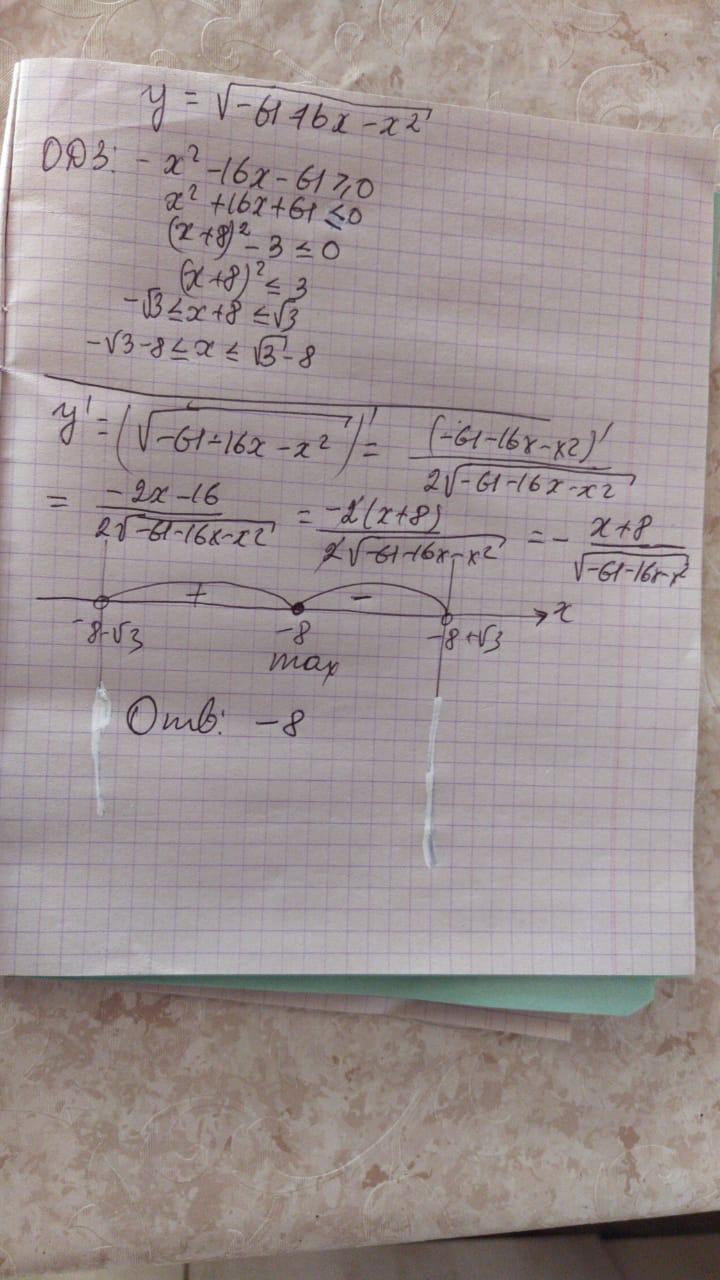 y = √(-61-16x-x²)
ОДЗ: -x²-16x-61⩾0
x²+16x+61≤0
(x+8)²-3≤0
(x+8)²≤3
-√3≤x+8≤√3
-√3-8≤x≤√3-8
y' = (√(-61-16x-x²))' = (-61-16x-x²)' / 2√(-61-16x-x²)
= (-2x-16) / 2√(-61-16x-x²) = -2(x+8) / 2√(-61-16x-x²) = - (x+8) / √(-61-16x-x²)
+ - x
-8-√3 -8 -8+√3
max
Отв: -8